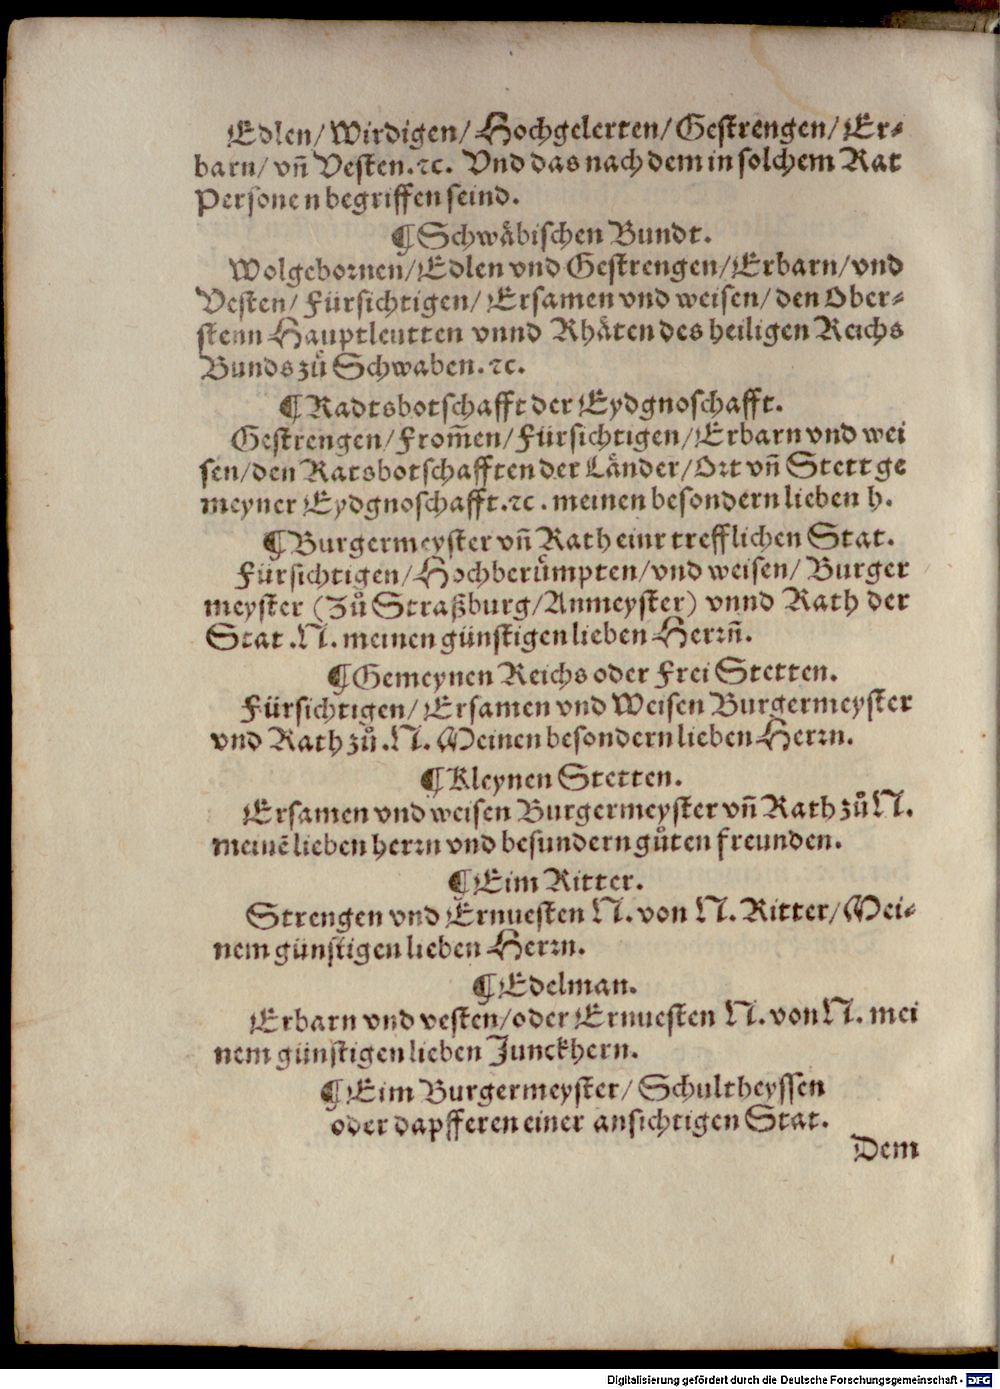 Edlen/ Wirdigen/ Hochgelerten/ Gestrengen/ Er⸗
barn/ vñ Vesten.ꝛc. Vnd das nach dem in solchem Rat
Personen begriffen seind.
¶ Schwäbischen Bundt.
Wolgebornen/ Edlen vnd Gestrengen/ Erbarn/ vnd
Vesten/ Fürsichtigen/ Ersamen vnd weisen/ den Ober⸗
stenn Hauptleutten vnnd Rhäten des heiligen Reichs
Bunds zuͦ Schwaben.ꝛc.
¶ Radtsbotschafft der Eydgnoschafft.
Gestrengen/ From̃en/ Fürsichtigen/ Erbarn vnd wei
sen/ den Ratsbotschafften der Länder/ Ort vñ Stett ge
meyner Eydgnoschafft.ꝛc. meinen besondern lieben h.
¶ Burgermeyster vñ Rath einr trefflichen Stat.
Fürsichtigen/ Hochberuͤmpten/ vnd weisen/ Burger
meyster (Zuͦ Straßburg/ Anmeyster) vnnd Rath der
Stat .N. meinen günstigen lieben Herrñ.
¶ Gemeynen Reichs oder Frei Stetten.
Fürsichtigen/ Ersamen vnd Weisen Burgermeyster
vnd Rath zuͦ .N. Meinen besondern lieben Herrn.
¶ Kleynen Stetten.
Ersamen vnd weisen Burgermeyster vñ Rath zuͦ N.
meinẽ lieben herrn vnd besundern guͦten freunden.
¶ Eim Ritter.
Strengen vnd Ernuesten N. von N. Ritter/ Mei⸗
nem günstigen lieben Herrn.
¶ Edelman.
Erbarn vnd vesten/ oder Ernuesten N. von N. mei
nem günstigen lieben Junckhern.
¶ Eim Burgermeyster/ Schultheyssen
oder dapfferen einer ansichtigen Stat.
Dem
Digitalisierung gefördert durch die Deutsche Forschungsgemeinschaft - DFG